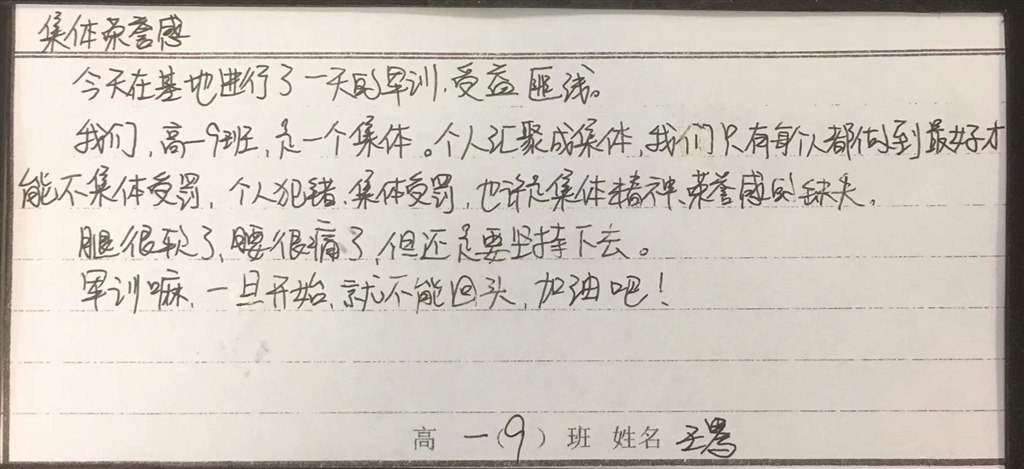 集体荣誉感
今天在基地进行了一天的军训，受益匪浅。
我们，高一9班，是一个集体。个人汇聚成集体，我们只有每个人都做到最好才
能不集体受罚，个人犯错，集体受罚，也许是集体精神、荣誉感的缺失。
腿很软了，腰很痛了，但还是要坚持下去。
军训嘛，一旦开始，就不能回头，加油吧！
高 一（9） 班 姓名